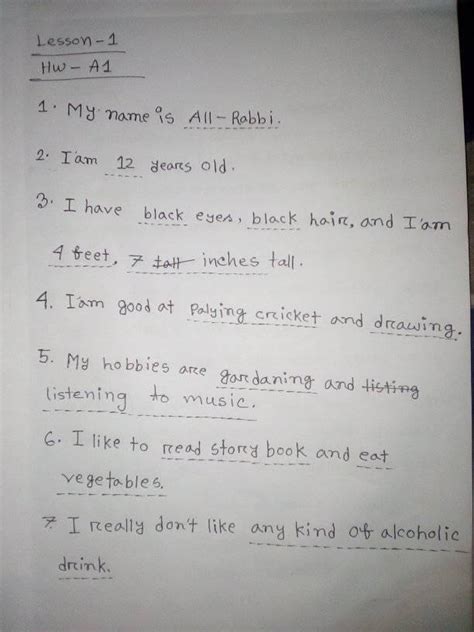 Lesson-1
HW - A1
1. My name is All-Rabbi.
2. I'am 12 years old.
3. I have black eyes, black hair, and I'am
4 feet, 7 tall inches tall.
4. I'am good at palying cricket and drawing.
5. My hobbies are gardaning and listing
listening to music.
6. I like to read story book and eat
vegetables.
7. I really don't like any kind of alcoholic
drink.